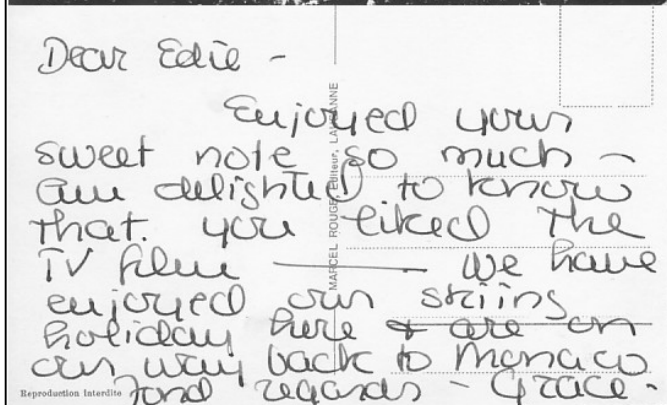 Dear Edie -
Enjoyed your
sweet note so much -
am delighted to know
that you liked the
TV film —— we have
enjoyed our skiing
holiday here & are on
our way back to Monaco
fond regards - Grace -
MARCEL ROUGE, Editeur, LAUSANNE
Reproduction Interdite